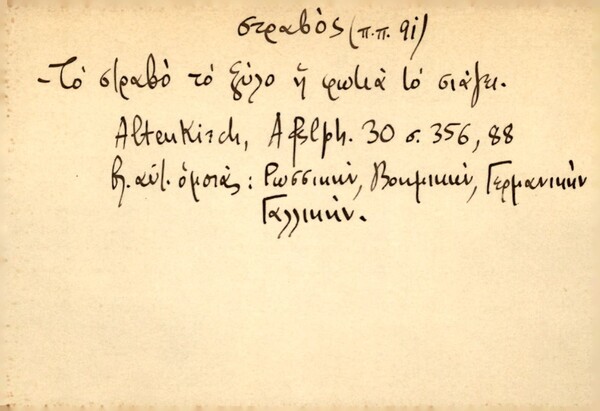 στραβὸς (π.π. 91)
- Τὸ στραβὸ τὸ ξύλο ἡ φωτιὰ τὸ σιάζει.
Altenkirch, Afslph. 30 σ. 356, 88
βλ. αὐτ. ὁμοιάς: Ρωσσικὴν, Βοημικὴν, Γερμανικὴν
Γαλλικὴν.